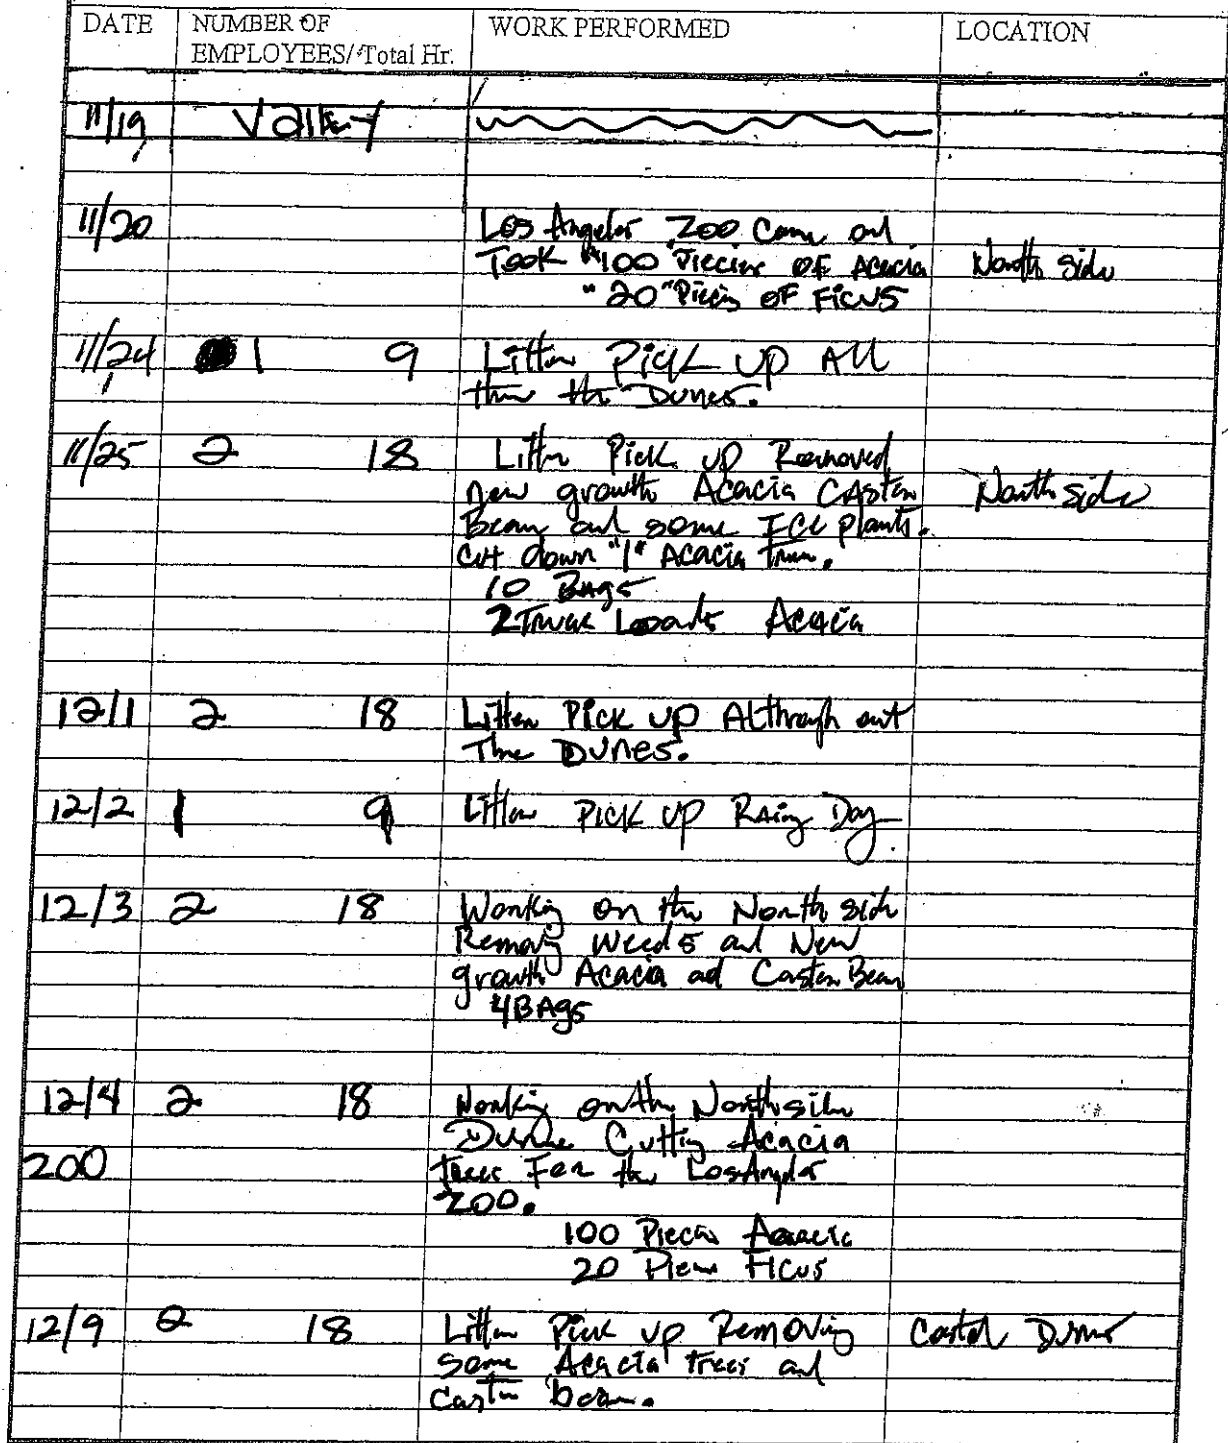 DATE NUMBER OF WORK PERFORMED LOCATION
EMPLOYEES/Total Hr.
11/19 Valley
11/20 Los Angeles Zoo Came and
Took "100 Pieces OF Acacia North Side
"20" Pieces OF FICUS
11/24 1 9 Litter Pick UP All
thru the Dunes.
11/25 2 18 Litter Pick UP Removed
New growth Acacia CAstor North Side
Bean and some ICE plants.
Cut down "1" Acacia Tree.
10 BAgs
2 Truck Loads Acacia
12/1 2 18 Litter Pick UP Althrough out
The Dunes.
12/2 1 9 Litter Pick UP RAiny Day
12/3 2 18 Working on the North side
Removing Weeds and New
growth Acacia ad Castor Bean
4 BAgs
12/4 2 18 Working on the North side
Dune Cutting Acacia
200 Trees For the Los Angeles
ZOO.
100 Pieces Acacia
20 Pieces FICUS
12/9 2 18 Litter Pick UP Removing Costal Dunes
some Acacia trees and
Castor bean.